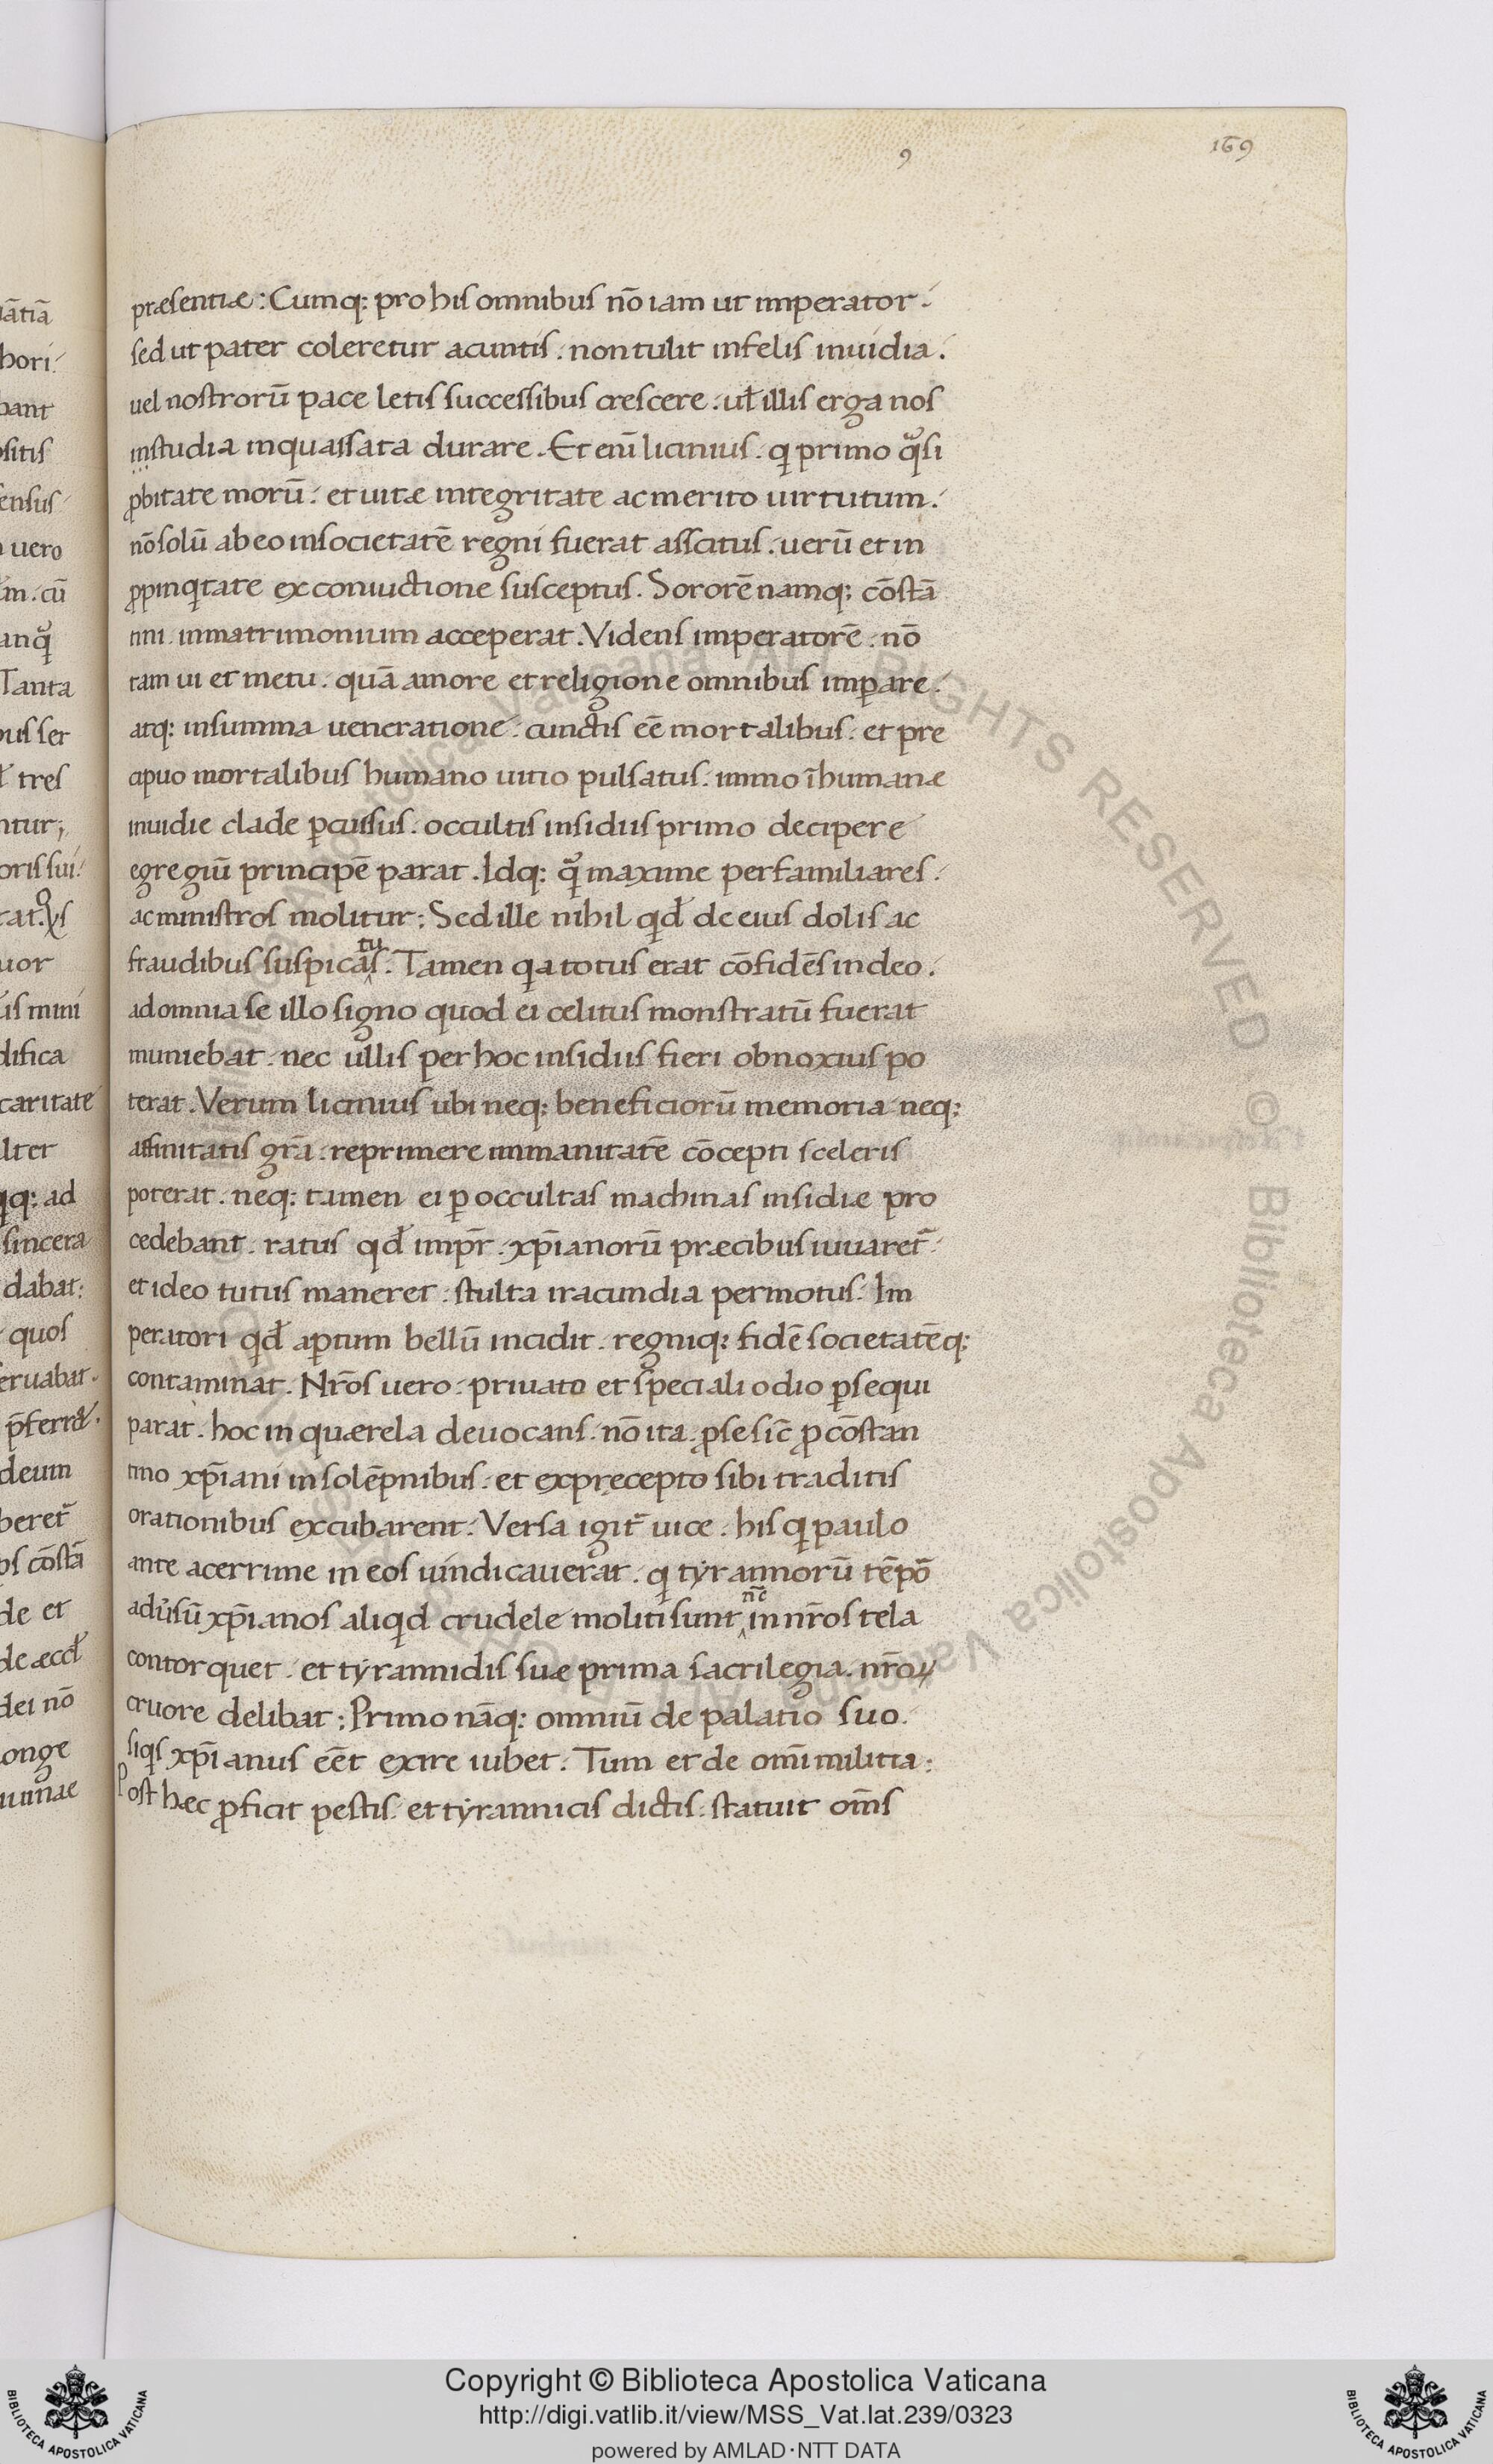 9
169
præsentiæ : Cumq: pro his omnibus nō iam ut imperator .
sed ut pater coleretur a cuntis . non tulit infelis inuidia .
uel nostrorū pace letis successibus crescere . uł illis erga nos
in studia inquassata durare . Et enī licinius . qi primo qͣsi
ꝓbitate morū . et uitæ integritate ac merito uirtutum .
nō solū ab eo in societatē regni fuerat asscitus . uerū et in
ꝓpinqitate ex coniuctione susceptus . Sororē namq: cōstā
tini . in matrimonium acceperat . Videns imperatorē . nō
tam ui et metu . quā amore et religione omnibus imꝑare .
atq: in summa ueneratione . cunctis eē mortalibus . et pre
cipuo mortalibus humano uitio pulsatus . immo īhumanæ
inuidie clade ꝑcussus . occultis insidiis primo decipere
egregiū principē parat . Idq: qͣ maxime per familiares .
ac ministros molitur ; Sed ille nihil qiđ de eius dolis ac
fraudibus suspica‸tu‸s . Tamen qia totus erat cōfidēs in deo .
ad omnia se illo signo quod ei celitus monstratū fuerat
muniebat . nec ullis per hoc insidiis fieri obnoxius po
terat . Verum licinius ubi neq: beneficiorū memoria neq:
affinitatis grā . reprimere immanitatē cōcepti sceleris
poterat . neq: tamen ei ꝑ occultas machinas insidiæ pro
cedebant . ratus qđ impr̄ . xp̄ianorū præcibus iuuaret̄ .
et ideo tutus maneret . stulta iracundia permotus . Im
peratori qiđ aꝑtum bellū incidit . regniq: fidē societatēq:
contaminat . Nr̄os uero . priuato et speciali odio ꝑsequi
parat . hoc in quærela deuocans . nō ita ꝓ se sic̄ ꝓ cōstan
tino xp̄iani in solēpnibus . et ex pręcepto sibi traditis
orationibus excubarent . Versa igit̄ uice . his qi paulo
ante acerrime in eos uindicauerat . qi tyrannorū tēpō
adu̓sū xp̄ianos aliqid crudele moliti sunt ‸nc̄ in nr̄os tela
contorquet . et tyrannidis suæ prima sacrilegia . nr̄oꝝ
cruore delibat ; Primo nāq: omniū de palatio suo .
siqis xp̄ianus eēt exire iubet . Tum et de om̄i militia .
Post hæc ꝓficit pestis . et tyrannicis dictis . statuit om̄s
Copyright © Biblioteca Apostolica Vaticana
http://digi.vatlib.it/view/MSS_Vat.lat.239/0323
powered by AMLAD·NTT DATA